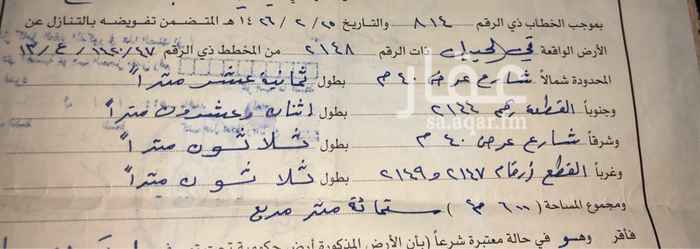 بموجب الخطاب ذي الرقم ٨١٤ والتاريخ ٢٥ / ٢ / ١٤٢٦ هـ المتضمن تفويضه بالتنازل عن
الأرض الواقعة في الحيسان ذات الرقم ٢١٤٨ من المخطط ذي الرقم
المحدودة شمالاً شارع عرض ٤٠ م بطول ثمانية عشر متراً
وجنوباً القطعة رقم ٢١٤٤ بطول اثنان وعشرون متراً
وشرقاً شارع عرض ٤٠ م بطول ثلاثون متراً
وغرباً القطع أرقام ٢١٤٧ و ٢١٤٩ بطول ثلاثون متراً
ومجموع المساحة ( ٦٠٠ م٢ ) ستمائة متر مربع
فأقر وهو في حالة معتبرة شرعاً (بأن الأرض المذكورة أرض حكومية
عقار
sa.aqar.fm